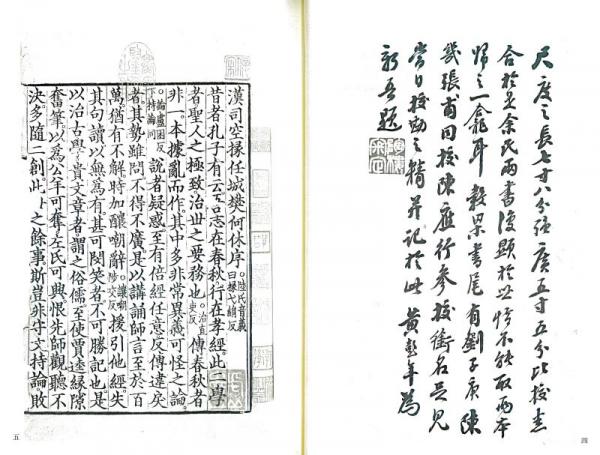 尺度之長七寸八分強廣五寸五分比校悉
合於是余氏兩書復顯於世惜不能取兩本
歸之一龕耳穀梁書尾有劉子庚陳
幾張甫同校陳應行參校銜名足見
當日校勘之精并記於此黃彭年為
題
四
漢司空掾任城樊何休序。陸氏音義曰掾弋絹反
昔者孔子有云吾志在春秋行在孝經此二學
者聖人之極致治世之要務也。治直吏反傳春秋者
非一本據亂而作其中多非常異義可怪之論
。論盧困反下持論同說者疑惑至有倍經任意反傳違戾
者其勢雖問不得不廣是以講誦師言至於百
萬猶有不解時加釀嘲辭。嘲陟交反援引他經失
其句讀以無為有甚可閔笑者不可勝記也是
以治古學貴文章者謂之俗儒至使賈逵緣隙
奮筆以為公羊可奪左氏可興恨先師觀聽不
決多隨二創此世之餘事斯豈非守文持論敗
五